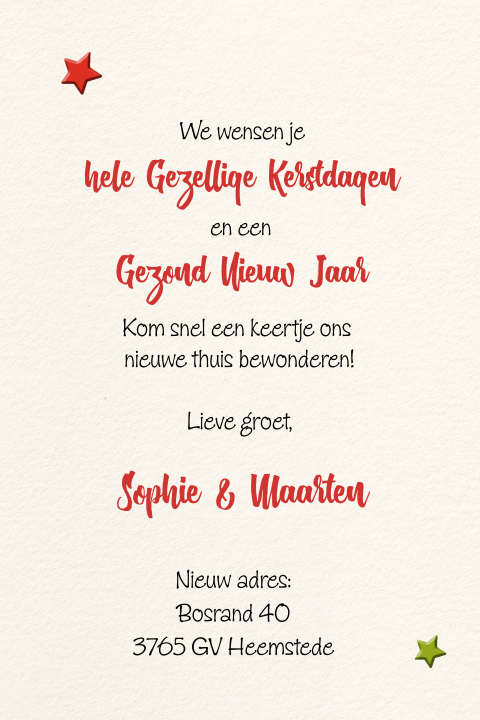 We wensen je
hele Gezellige Kerstdagen
en een
Gezond Nieuw Jaar
Kom snel een keertje ons
nieuwe thuis bewonderen!
Lieve groet,
Sophie & Maarten
Nieuw adres:
Bosrand 40
3765 GV Heemstede